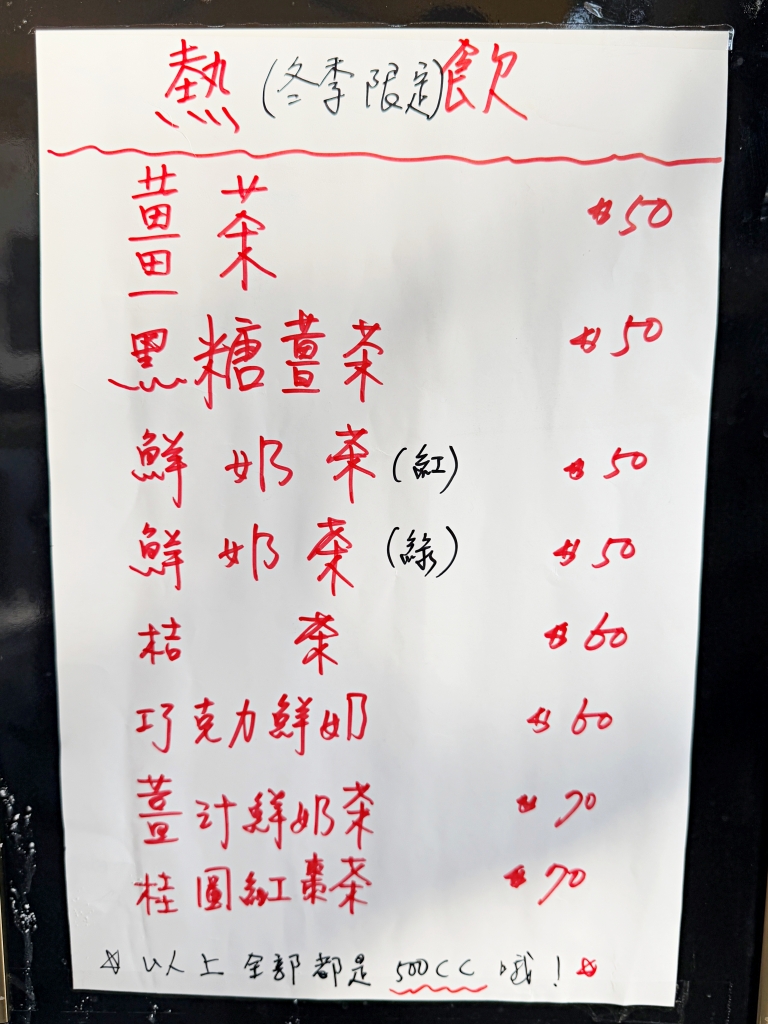 熱(冬季限定)飲
薑茶 $50
黑糖薑茶 $50
鮮奶茶(紅) $50
鮮奶茶(綠) $50
桔茶 $60
巧克力鮮奶 $60
薑汁鮮奶茶 $70
桂圓紅棗茶 $70
☆以上全部都是500CC哦!☆